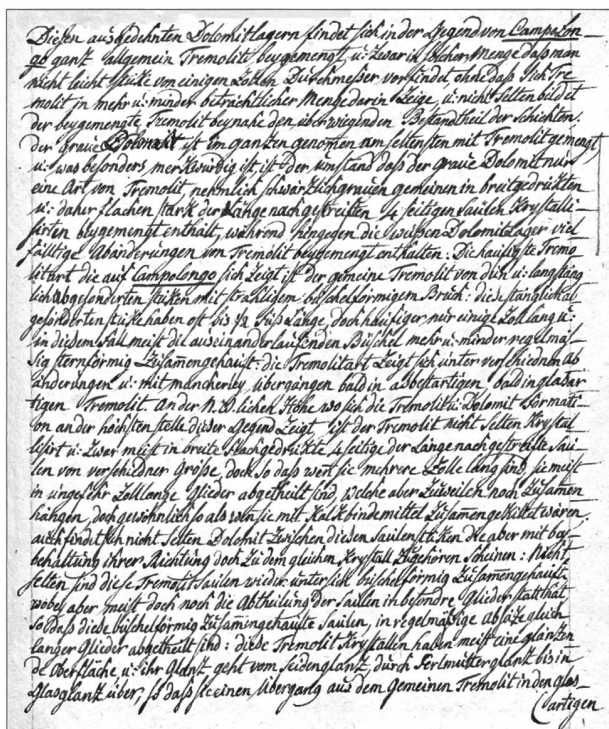 Diesen ausgedehnten Dolomitlagern findet sich in der Gegend von Campolon-
go ganz allgemein Tremolit beygemengt, u: zwar in solcher Menge daß man
nicht leicht stüke von einigen Zollen Durchmesser vorfindet, ohne daß sich Tre-
molit in mehr u: minder beträchtlicher Menge darin zeige, u: nicht selten bildet
der beygemengte Tremolit beynahe den überwiegenden Bestandtheil der schichten.
der graue Dolomit ist im ganzen genomen am seltensten mit Tremolit gemengt
u: was besonders merkwürdig ist ist der umstand daß der graue Dolomit nur
eine Art von Tremolit nehmlich schwärzlichgrauen gemeinen in breitgedrükten
u: daher flachen stark der Länge nach gestreiften 4 seitigen saulen Krystalli-
sirten beygemengt enthält, während hingegen die weißen Dolomitlager viel
fälltige Abänderungen von Tremolit beygemengt enthalten. Die haufigste Tremo
litart die auf Campolongo sich zeigt ist der gemeine Tremolit von dün u: langstäng
lich abgesonderten stüken mit strahligem büschelförmigem Bruch: diese stänglich ab
gesonderten stüke haben oft bis 1/2 Fuß Länge, doch häufiger nur einige Zoll lang u:
in diesem Fall meist die auseinanderlaufenden Büschel mehr u: minder regelmäs-
sig sternförmig Zusamengehauft: die Tremolitart zeigt sich unter verschiednen ab
änderungen u: mit mancherley übergängen bald in asbestartigen bald in glasar
tigen Tremolit. An der N.O.lichen Höhe wo sich die Tremolit u: Dolomit Formati-
on an der höchsten stelle dieser Gegend zeigt ist der Tremolit nicht selten Krystal
lisirt u: zwar meist in breite flachgedrükte 4 seitige der Länge nach gestreifte säu
len von verschiedner Größe, doch so daß wen sie mehrere Zolle lang sind sie meist
in ungefehr Zolllange Glieder abgetheilt sind, welche aber zuweilen noch zusamen
hängen, doch gewöhnlich so als wen sie mit Kalkbindemittel zusamengekittet wären,
auch findet sich nicht selten Dolomit zwischen diesen saulenstüken die aber mit bey
behaltung ihrer Richtung doch zu dem gleichen Krystall zugehören scheinen: Nicht
selten sind diese Tremolitsaulen wieder unter sich büschelförmig zusamengehauft,
wobey aber meist doch noch die Abtheilung der saulen in besondre Glieder statt hat
so daß diese büschelförmig zusamengehaufte saulen, in regelmäßige Absätze gleich
langer Glieder abgetheilt sind: diese Tremolit Krystallen haben meist eine glänzen
de oberfläche u: ihr Glanz, geht vom seidenglanz durch Perlmutterglanz bis in
Glasglanz über, so daß sie einen übergang aus dem gemeinen Tremolit in den glas-
artigen